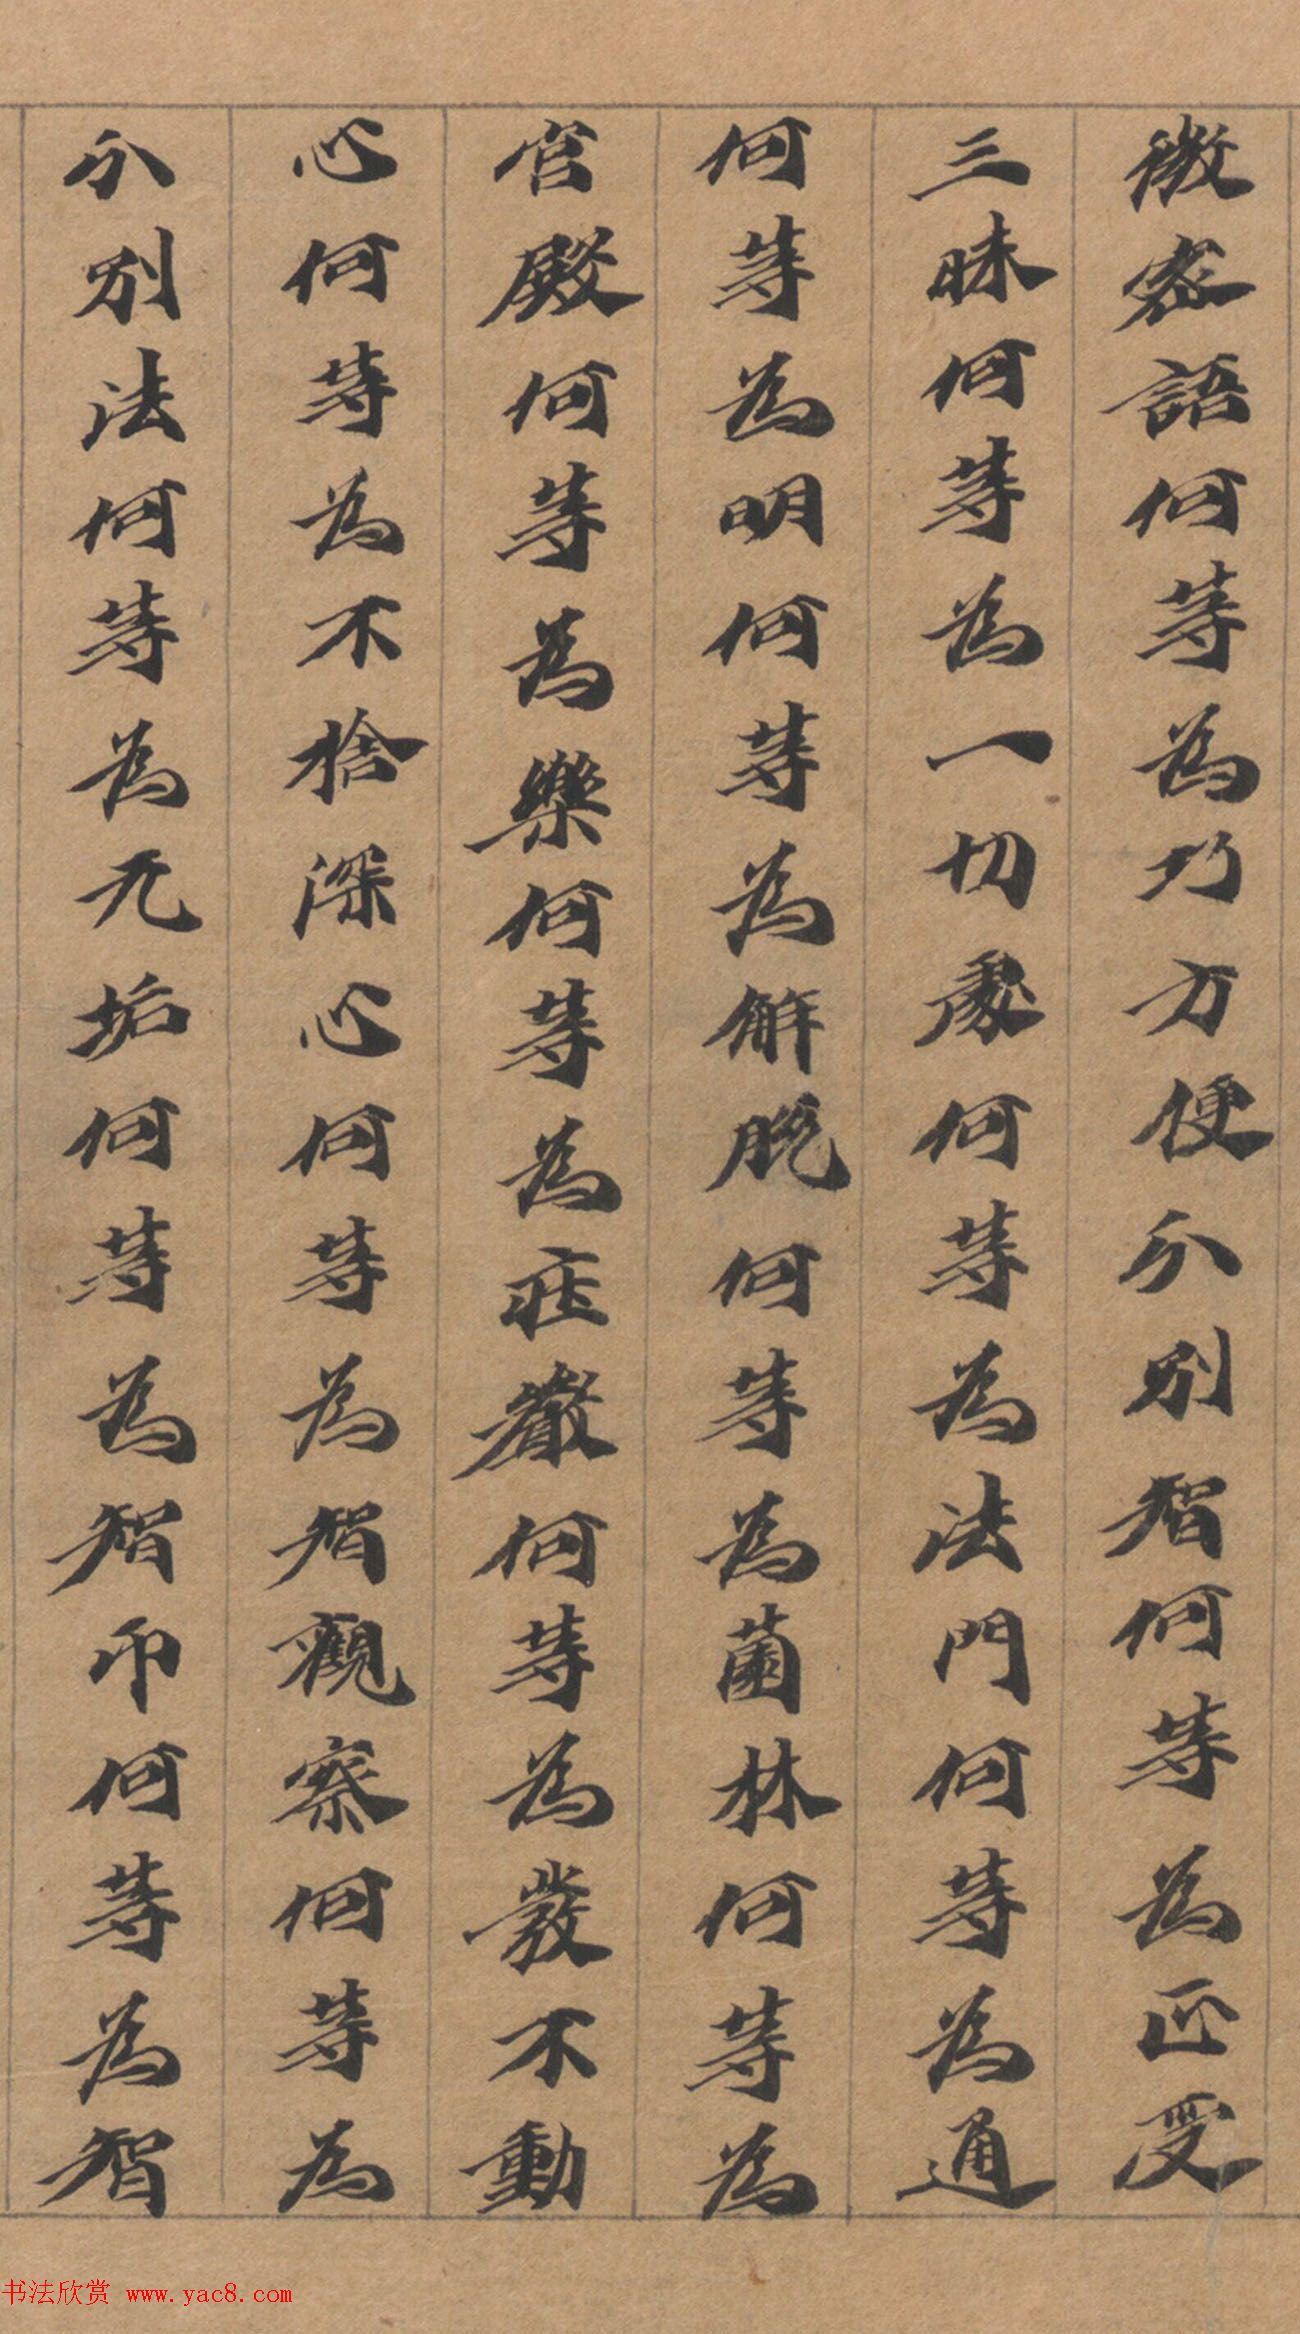 微密語何等為巧方便分別智何等為正受
三昧何等為一切處何等為法門何等為通
何等為明何等為解脫何等為薗林何等為
宮殿何等為樂何等為莊嚴何等為發不動
心何等為不捨深心何等為智觀察何等為
分別法何等為无垢何等為智印何等為智
书法欣赏 www.yac8.com